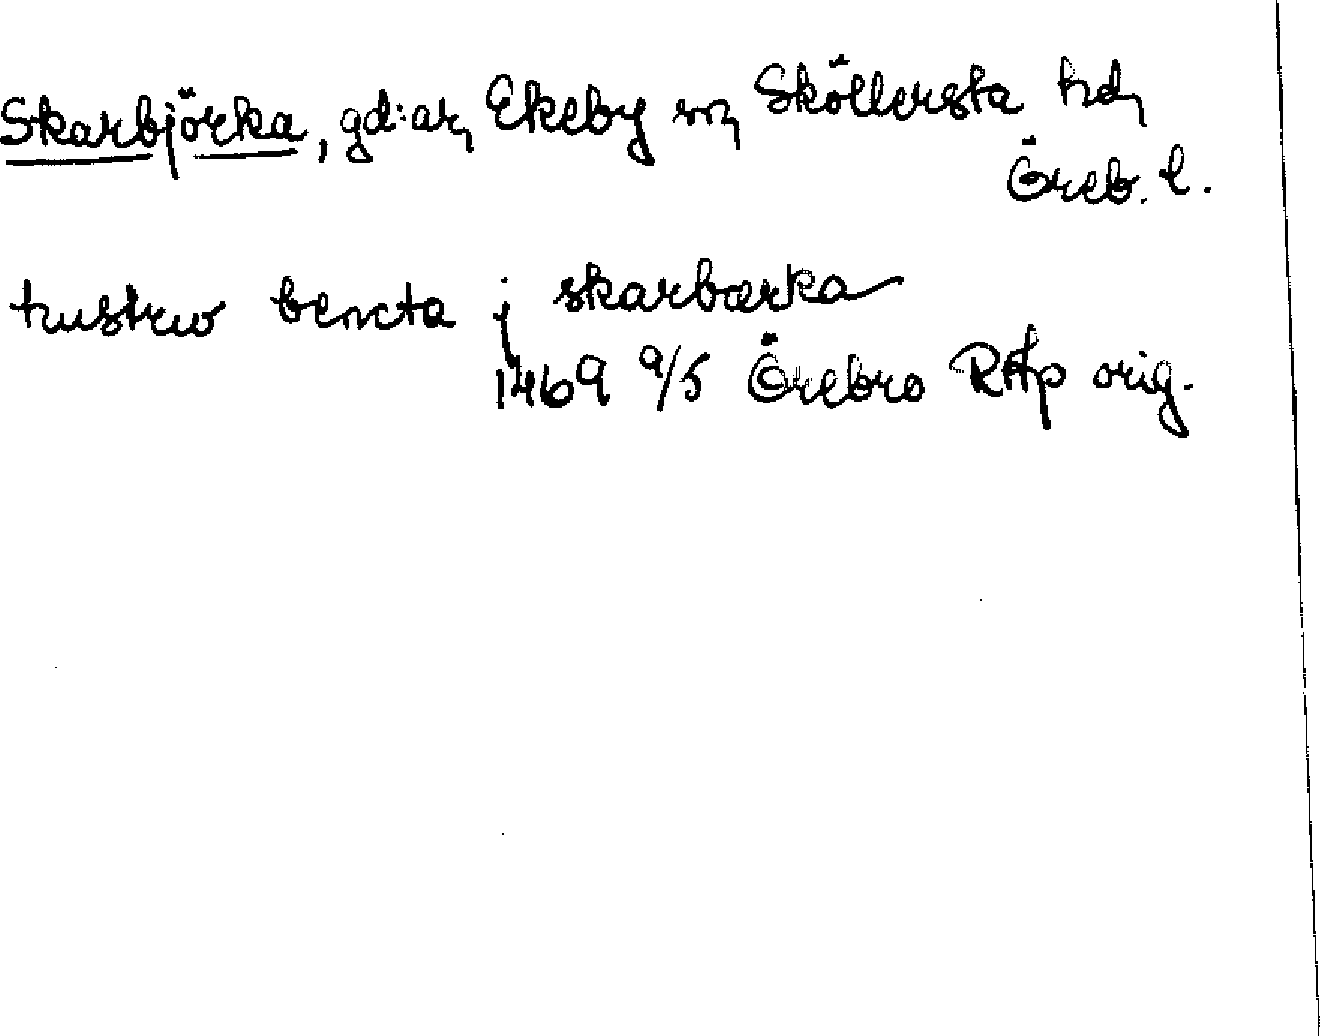 Skarbjörka, gd:ar, Ekeby sn, Sköllersta hd,
Öreb. l.
hustrw bencta j skarbærka
1469 9/5 Örebro RAp orig.